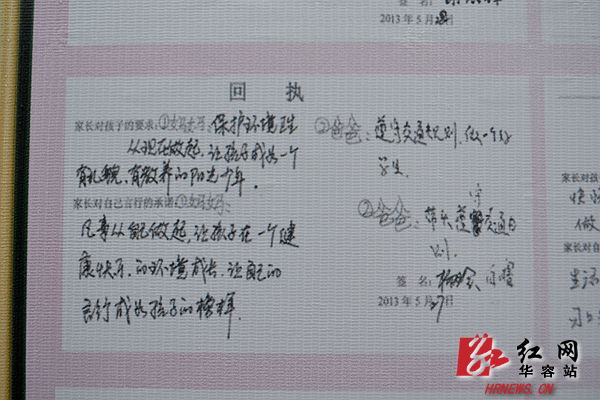 签 名：
2013 年 5 月28日
回 执
家长对孩子的要求：①妈妈：保护环境卫生
从现在做起，让孩子成为一个
有礼貌，有教养的阳光少年。
②爸爸：遵守交通规则，做一个好
学生。
家长对自己言行的承诺：①妈妈：
凡事从自己做起，让孩子在一个健
康快乐，的环境成长，让自己的
言行成为孩子的榜样。
②爸爸：带头遵守交通
规则。
签 名：
2013 年 5 月27日
家长对孩
家长对自
生活
红网
华容站
HRNEWS.CN